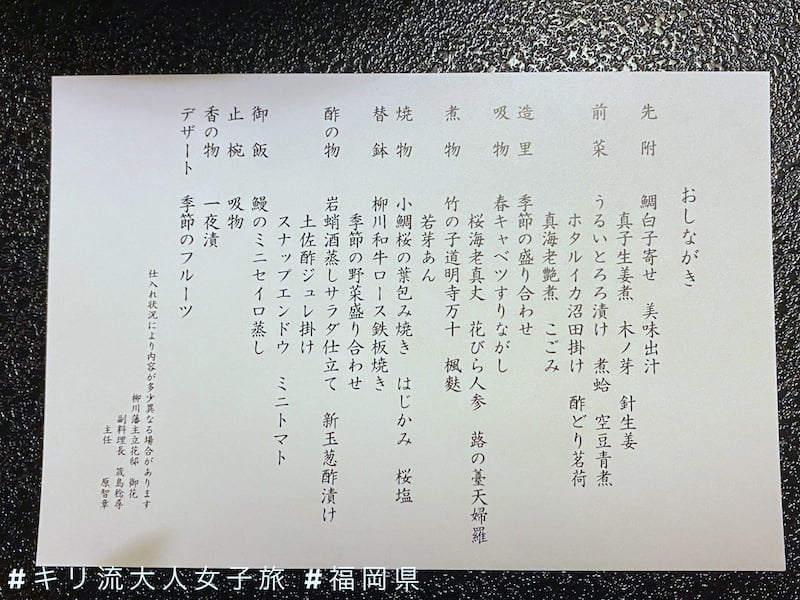 おしながき
先附　鯛白子寄せ　美味出汁
真子生姜煮　木ノ芽　針生姜
前菜　うるいとろろ漬け　煮蛤　空豆青煮
ホタルイカ沼田掛け　酢どり茗荷
真海老艶煮　こごみ
造里　季節の盛り合わせ
吸物　春キャベツすりながし
桜海老真丈　花びら人参　蕗の薹天婦羅
煮物　竹の子道明寺万十　楓麩
若芽あん
焼物　小鯛桜の葉包み焼き　はじかみ　桜塩
替鉢　柳川和牛ロース鉄板焼き
季節の野菜盛り合わせ
酢の物　岩蛸酒蒸しサラダ仕立て　新玉葱酢漬け
土佐酢ジュレ掛け
スナップエンドウ　ミニトマト
御飯　鰻のミニセイロ蒸し
止椀　吸物
香の物　一夜漬
デザート　季節のフルーツ
仕入れ状況により内容が多少異なる場合があります
柳川藩主立花邸　御花
副料理長　蔵島稔尋
主任　原智章
#キリ流大人女子旅 #福岡県